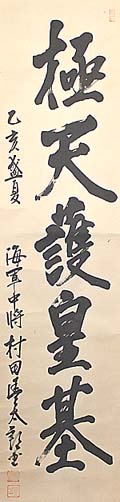 極天護皇基
乙亥盛夏
海軍中將村田豊太郎書